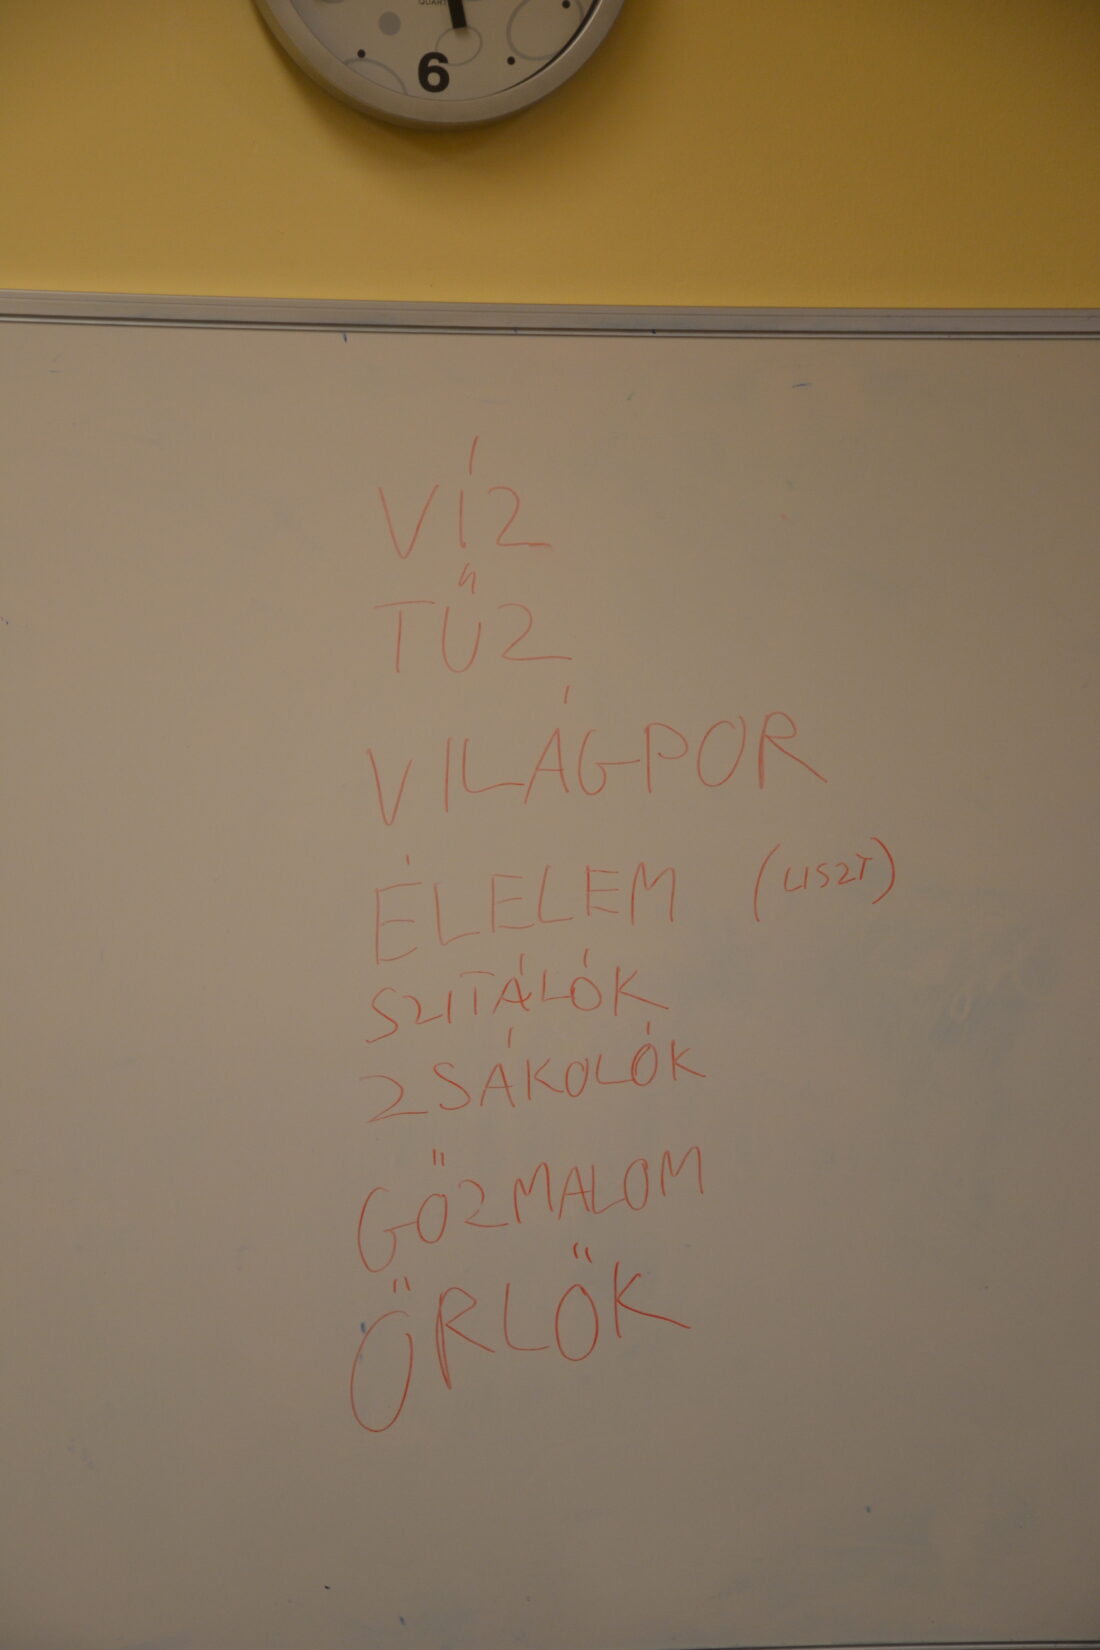 QUARTZ
6
VÍZ
TŰZ
VILÁGPOR
ÉLELEM (LISZT)
SZITÁLÓK
ZSÁKOLÓK
GŐZMALOM
ŐRLŐK